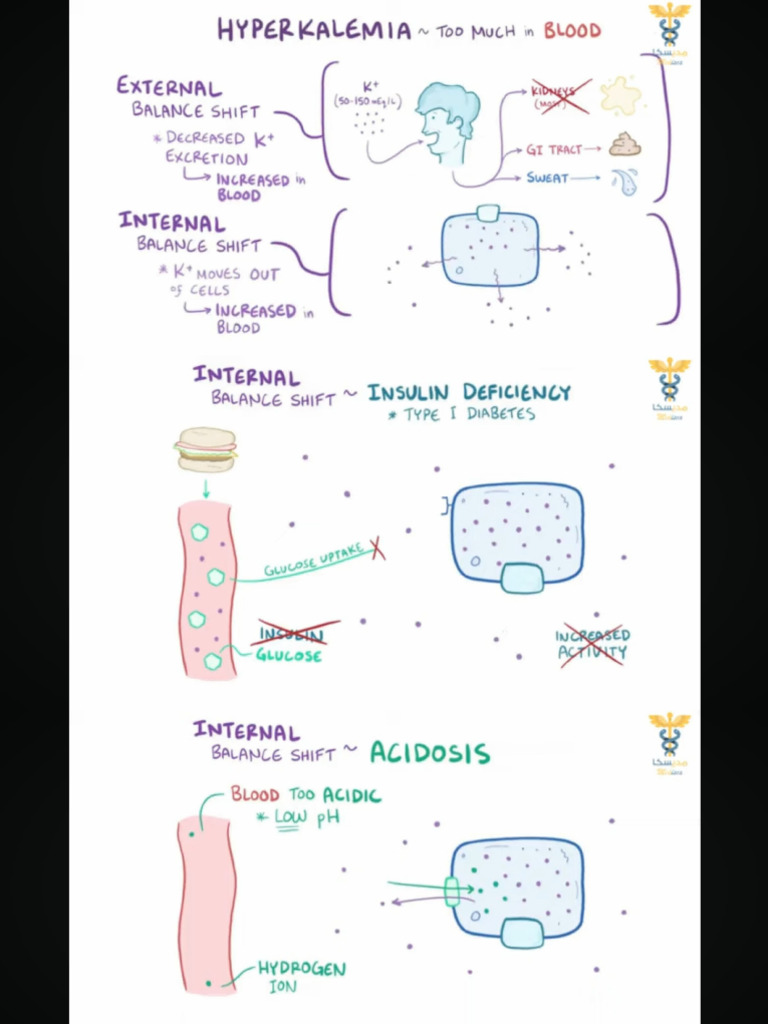 HYPERKALEMIA ~ TOO MUCH in BLOOD
EXTERNAL
BALANCE SHIFT
* DECREASED K+
EXCRETION
↳ INCREASED in
BLOOD
K+
(50-150 mEq/L)
KIDNEYS
(MOST)
GI TRACT
SWEAT
INTERNAL
BALANCE SHIFT
* K+ MOVES OUT
of CELLS
↳ INCREASED in
BLOOD
INTERNAL
BALANCE SHIFT ~ INSULIN DEFICIENCY
* TYPE I DIABETES
GLUCOSE UPTAKE X
INSULIN
GLUCOSE
INCREASED
ACTIVITY
INTERNAL
BALANCE SHIFT ~ ACIDOSIS
BLOOD TOO ACIDIC
* LOW pH
HYDROGEN
ION